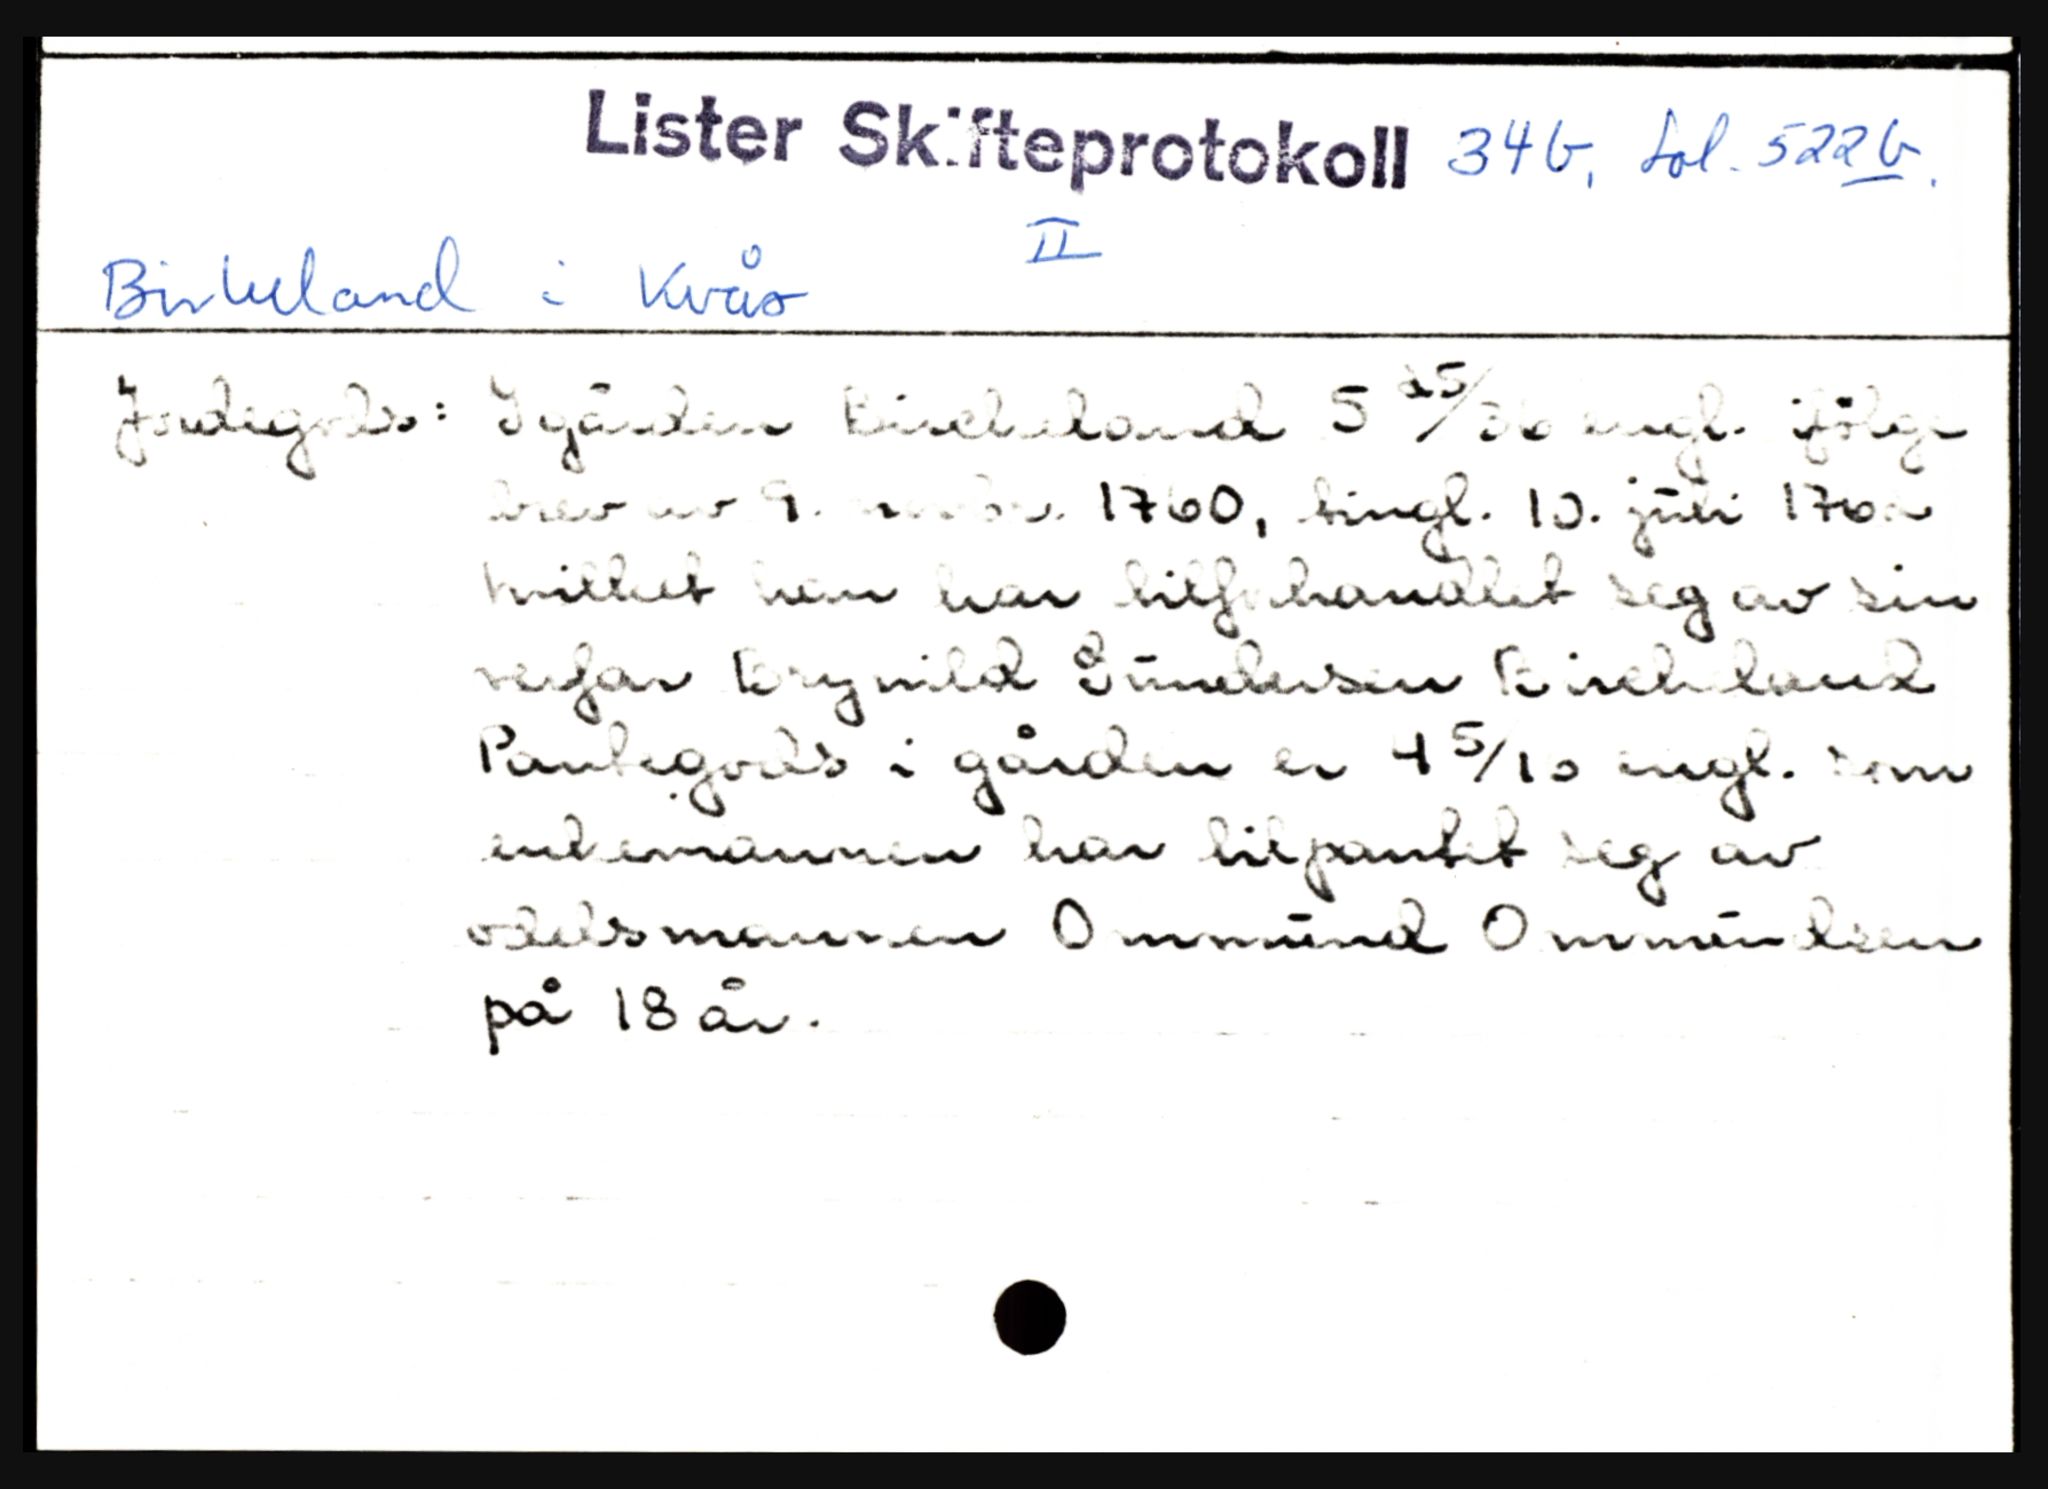 Lister Skifteprotokoll 34b, fol. 522b.
II
Birkeland i Kvås
Jordegods: I gården Bircheland 5 25/36 engl. ifölge
brev av 9. novbr. 1760, tingl. 10. juli 1762
hvilket han har tilforhandlet seg av sin
verfar Brynild Gundersen Bircheland
Pantegods i gården er 4 5/10 engl. som
enkemannen har tilpantet seg av
odelsmannen Ommund Ommundsen
på 18 år.